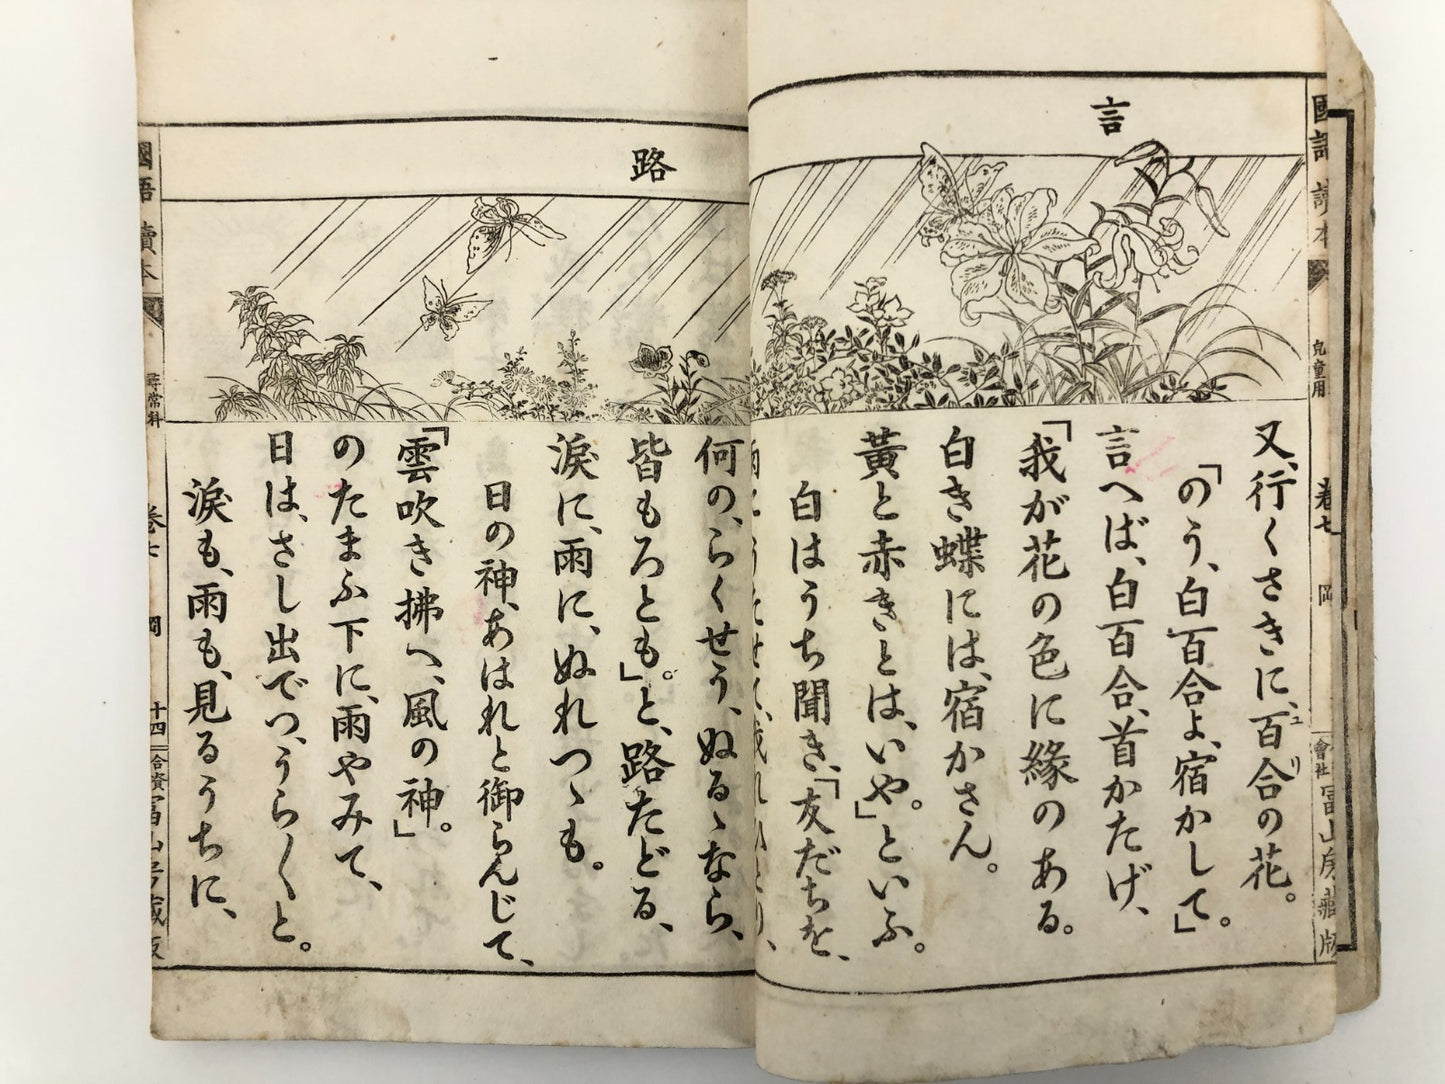 言
又、行くさきに、百合の花。
ユリ
「のう、白百合よ、宿かして」。
言へば、白百合、首かたげ、
「我が花の色に緣のある。
白き蝶には、宿かさん。
黃と赤きとは、いや。」といふ。
白はうち聞き、「友だちを、
路
何の、らくせう、ぬるゝなら、
皆もろとも。」と、路たどる、
淚に、雨に、ぬれつゝも。
日の神、あはれと御らんじて、
「雲吹き拂へ、風の神」。
のたまふ下に、雨やみて、
日は、さし出でつ、うら〱と。
淚も、雨も、見るうちに、
國語讀本
兒童用
卷七
會社 冨山房藏版
國語讀本
尋常科
卷七
十四
合資 冨山房藏版